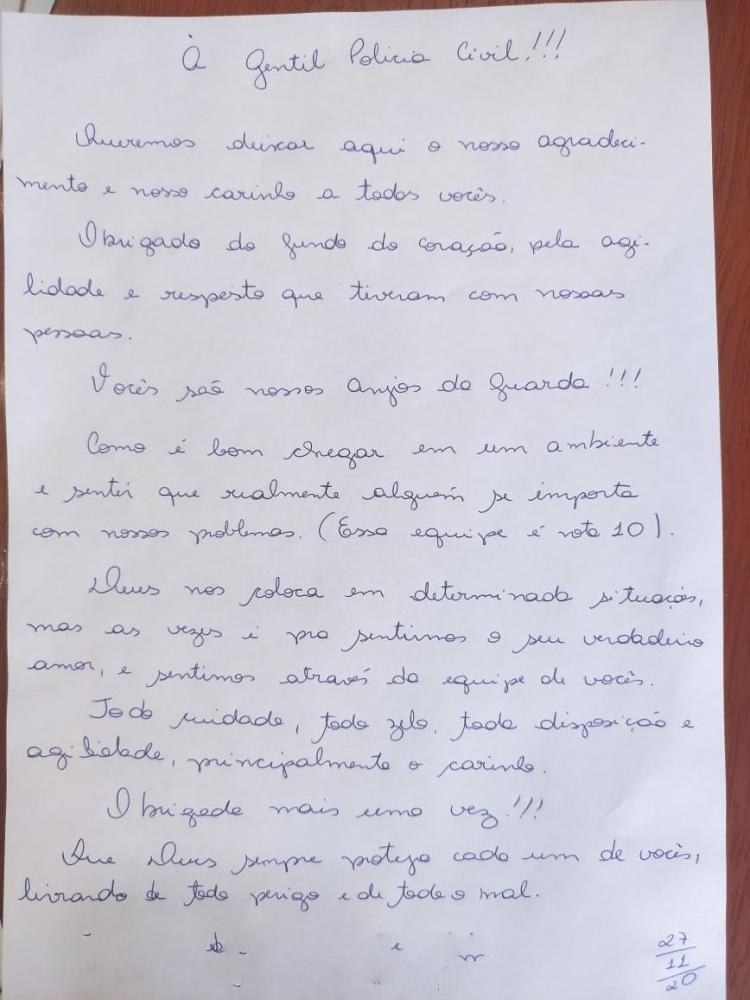 À Gentil Policia Civil!!!
Queremos deixar aqui o nosso agradeci-
mento e nosso carinho a todos vocês.
Obrigado do fundo do coração, pela agi-
lidade e respesto que tiveram com nossas
pessoas.
Vocês são nossos Anjos da Guarda!!!
Como é bom chegar em um ambiente
e sentir que realmente alguém se importa
com nossos problemas. (Essa equipe é nota 10).
Deus nos coloca em determinada situação,
mas as vezes é pra sentirmos o seu verdadeiro
amor, e sentimos através da equipe de vocês.
Todo cuidado, todo zelo, toda disposição e
agilidade, principalmente o carinho.
Obrigada mais uma vez!!!
Que Deus sempre proteja cada um de vocês,
livrando de todo perigo e de todo o mal.
27
11
20